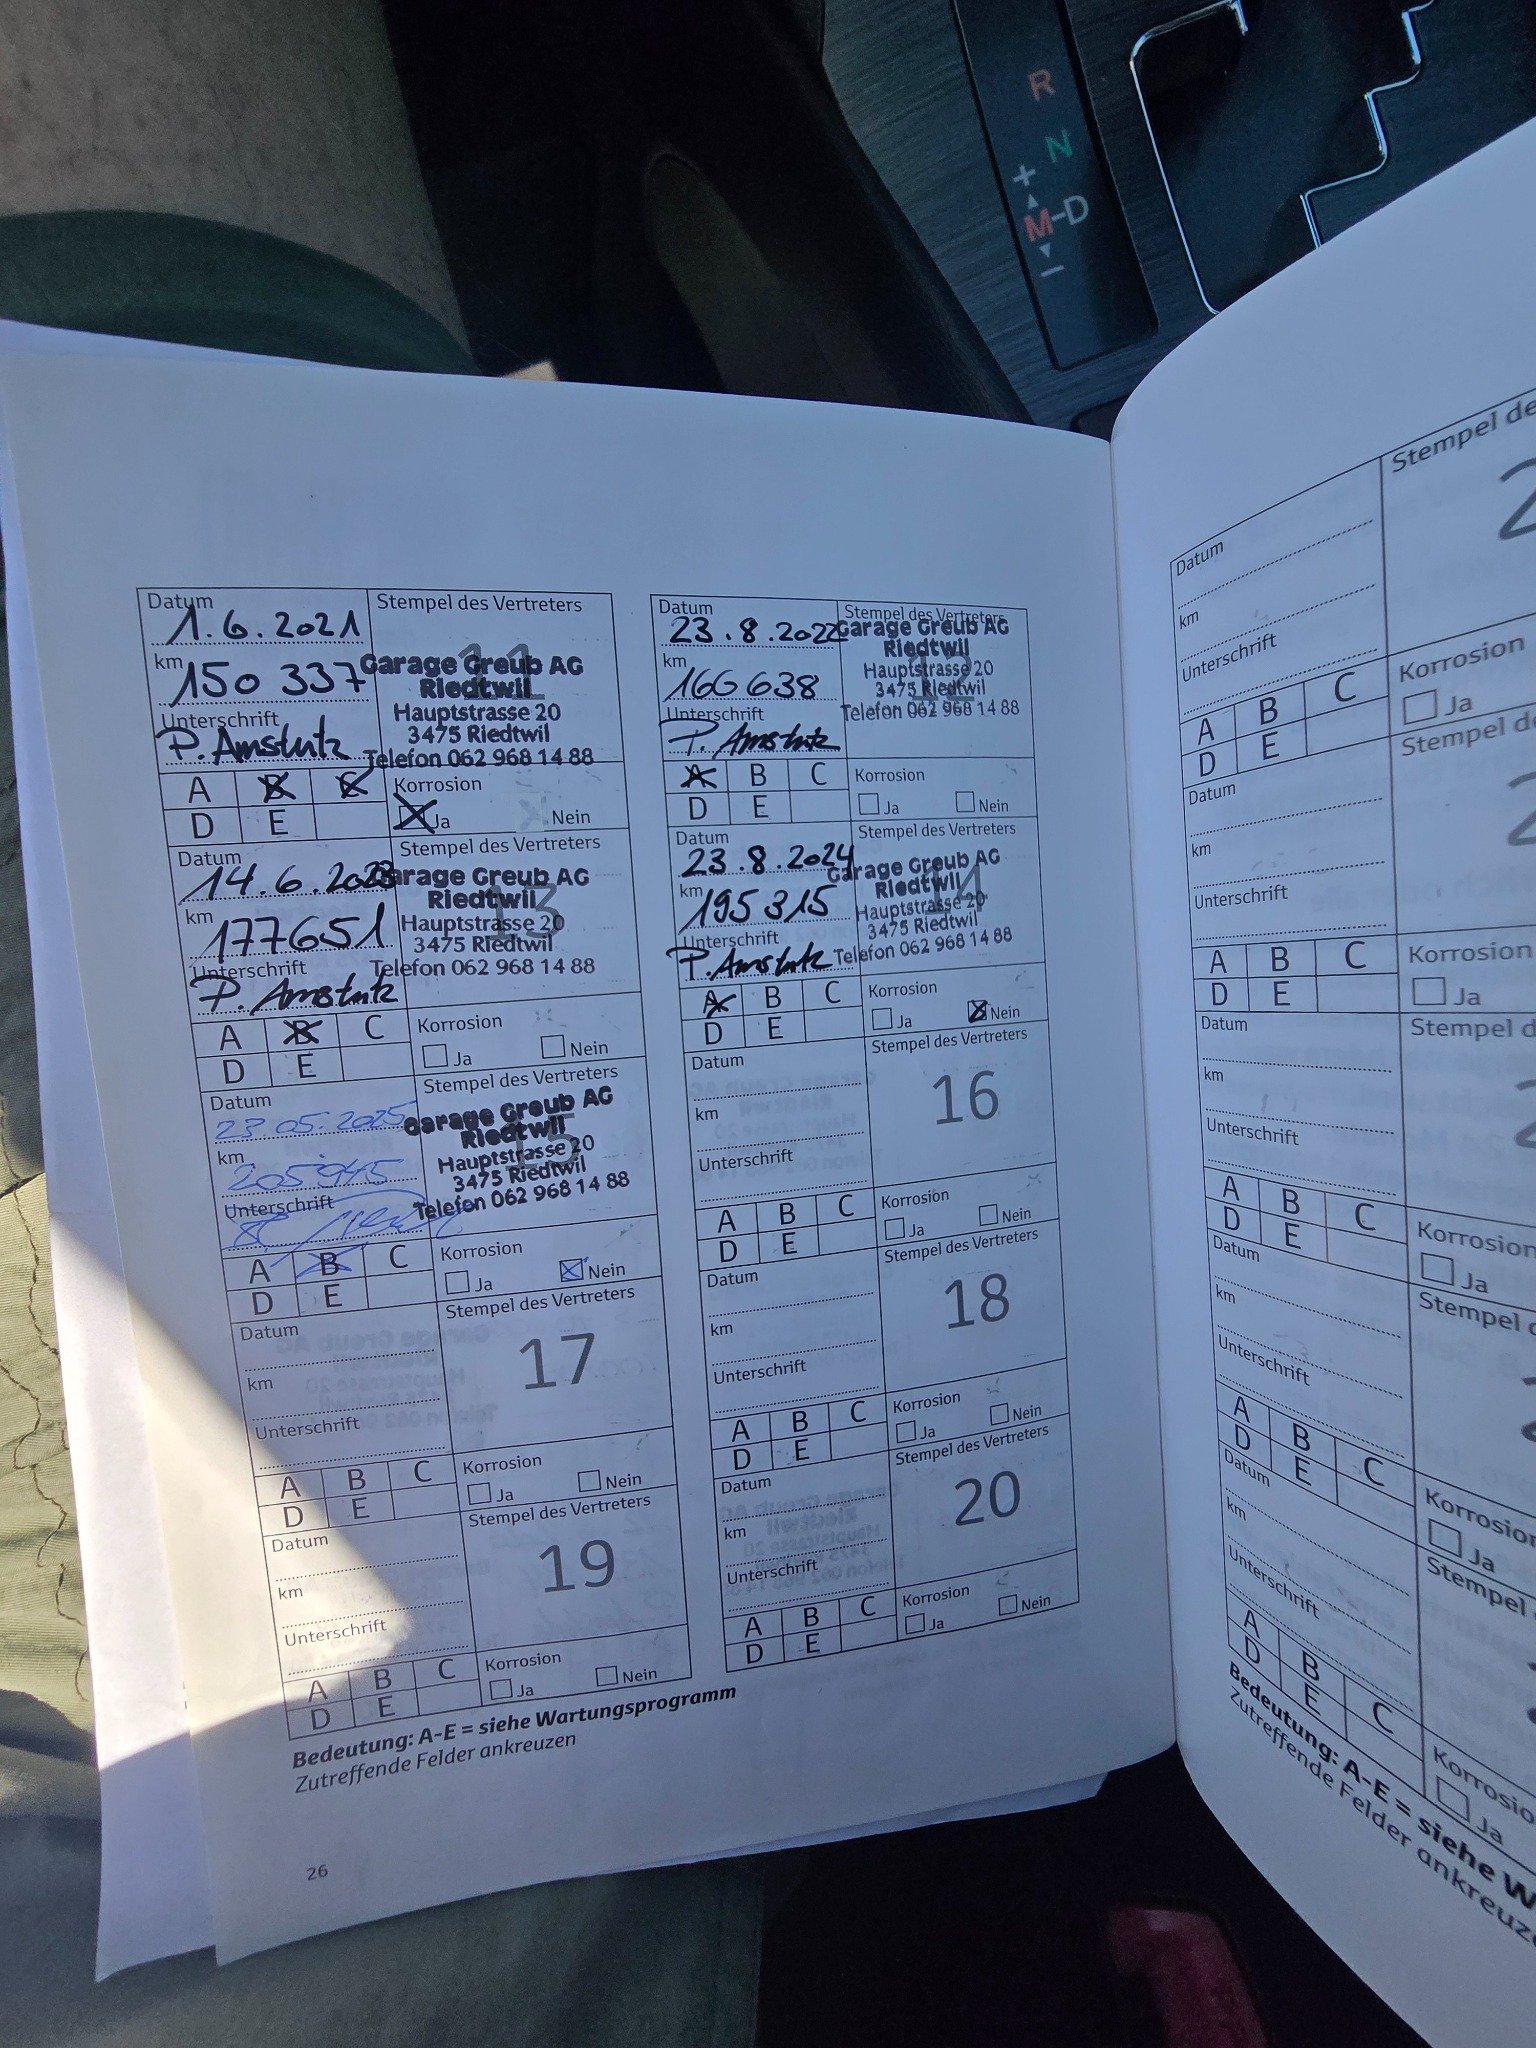 R
N
+
M-D
-
Datum
1.6.2021
km
150 337
Unterschrift
P. Amstutz
Stempel des Vertreters
11
Garage Greub AG
Riedtwil
Hauptstrasse 20
3475 Riedtwil
Telefon 062 968 14 88
A B C
D E
Korrosion
Ja Nein
Datum
23.8.2022
km
166 638
Unterschrift
P. Amstutz
Stempel des Vertreters
Garage Greub AG
Riedtwil
Hauptstrasse 20
3475 Riedtwil
Telefon 062 968 14 88
A B C
D E
Korrosion
Ja Nein
Datum
14.6.2023
km
177651
Unterschrift
P. Amstutz
Stempel des Vertreters
13
Garage Greub AG
Riedtwil
Hauptstrasse 20
3475 Riedtwil
Telefon 062 968 14 88
A B C
D E
Korrosion
Ja Nein
Datum
23.8.2024
km
195 315
Unterschrift
P. Amstutz
Stempel des Vertreters
14
Garage Greub AG
Riedtwil
Hauptstrasse 20
3475 Riedtwil
Telefon 062 968 14 88
A B C
D E
Korrosion
Ja Nein
Datum
23.05.2025
km
205945
Unterschrift
Stempel des Vertreters
Garage Greub AG
Riedtwil
Hauptstrasse 20
3475 Riedtwil
Telefon 062 968 14 88
A B C
D E
Korrosion
Ja Nein
Datum
km
Unterschrift
Stempel des Vertreters
16
A B C
D E
Korrosion
Ja Nein
Datum
km
Unterschrift
Stempel des Vertreters
17
A B C
D E
Korrosion
Ja Nein
Datum
km
Unterschrift
Stempel des Vertreters
18
A B C
D E
Korrosion
Ja Nein
Datum
km
Unterschrift
Stempel des Vertreters
19
A B C
D E
Korrosion
Ja Nein
Datum
km
Unterschrift
Stempel des Vertreters
20
A B C
D E
Korrosion
Ja Nein
Bedeutung: A-E = siehe Wartungsprogramm
Zutreffende Felder ankreuzen
26
Datum
km
Unterschrift
Stempel de
2
A B C
D E
Korrosion
Ja
Datum
km
Unterschrift
Stempel de
2
A B C
D E
Korrosion
Ja
Datum
km
Unterschrift
Stempel d
2
A B C
D E
Korrosion
Ja
Datum
km
Unterschrift
Stempel d
A B C
D E
Korrosion
Ja
Datum
km
Unterschrift
Stempel
A B C
D E
Korrosio
Ja
Bedeutung: A-E = siehe W
Zutreffende Felder ankreuze